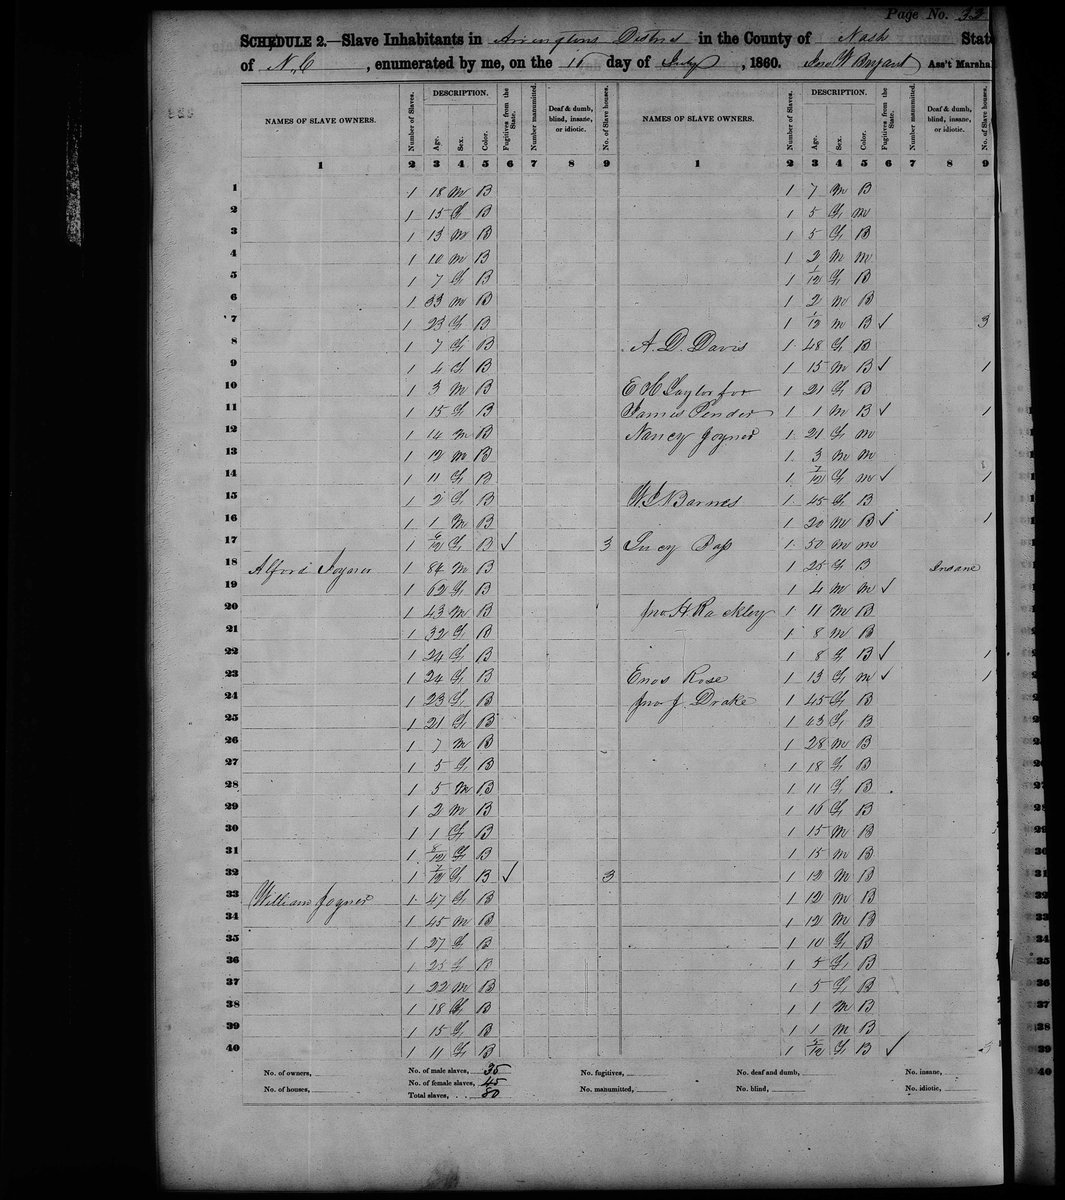 Page No. 33
SCHEDULE 2.—Slave Inhabitants in Arringtons District in the County of Nash State
of N.C, enumerated by me, on the 16 day of July, 1860. Jno W Bryant Ass't Marshal
NAMES OF SLAVE OWNERS. Number of Slaves. DESCRIPTION. Age. Sex. Color. Fugitives from the State. Number manumitted. Deaf & dumb, blind, insane, or idiotic. No. of Slave houses. NAMES OF SLAVE OWNERS. Number of Slaves. DESCRIPTION. Age. Sex. Color. Fugitives from the State. Number manumitted. Deaf & dumb, blind, insane, or idiotic. No. of Slave houses.
1 2 3 4 5 6 7 8 9 1 2 3 4 5 6 7 8 9
1 1 18 m B 1 7 m B
2 1 15 F B 1 5 F m
3 1 13 m B 1 5 F B
4 1 10 m B 1 2 m m
5 1 7 F B 1 1/12 F B
6 1 33 m B 1 2 m B
7 1 23 F B 1 1/12 m B ✓ 3
8 1 7 F B A. D. Davis 1 48 F B
9 1 4 F B 1 15 m B ✓ 1
10 1 3 m B E H Taylor for 1 21 F B
11 1 15 F B James Pender 1 1 m B ✓ 1
12 1 14 m B Nancy Joyner 1 21 F m
13 1 12 m B 1 3 m m
14 1 11 F B 1 7/12 F m ✓ 1
15 1 2 F B W S Barnes 1 45 F B
16 1 1 m B 1 20 m B ✓ 1
17 1 6/12 F B ✓ 3 Lucy Bass 1 50 m m
18 Alford Joyner 1 84 m B 1 25 F B Insane
19 1 62 F B 1 4 m m ✓
20 1 43 m B Jno H Rackley 1 11 m B
21 1 32 F B 1 8 m B
22 1 24 F B 1 8 F B ✓ 1
23 1 24 F B Enos Rose 1 13 F m ✓ 1
24 1 23 F B Jno J. Drake 1 45 F B
25 1 21 F B 1 63 F B
26 1 7 m B 1 28 m B
27 1 5 F B 1 18 F B
28 1 5 m B 1 11 F B
29 1 2 m B 1 16 F B
30 1 1 F B 1 15 m B
31 1 8/12 F B 1 15 m B
32 1 7/12 F B ✓ 3 1 12 m B
33 William Joyner 1 47 F B 1 12 m B
34 1 45 m B 1 12 m B
35 1 27 F B 1 10 F B
36 1 25 F B 1 5 F B
37 1 22 m B 1 5 F B
38 1 18 F B 1 1 m B
39 1 15 F B 1 1 m B
40 1 11 F B 1 2/12 F B ✓
No. of owners, No. of male slaves, 35 No. fugitives, No. deaf and dumb, No. insane,
No. of houses, No. of female slaves, 45 No. manumitted, No. blind, No. idiotic,
Total slaves, 80